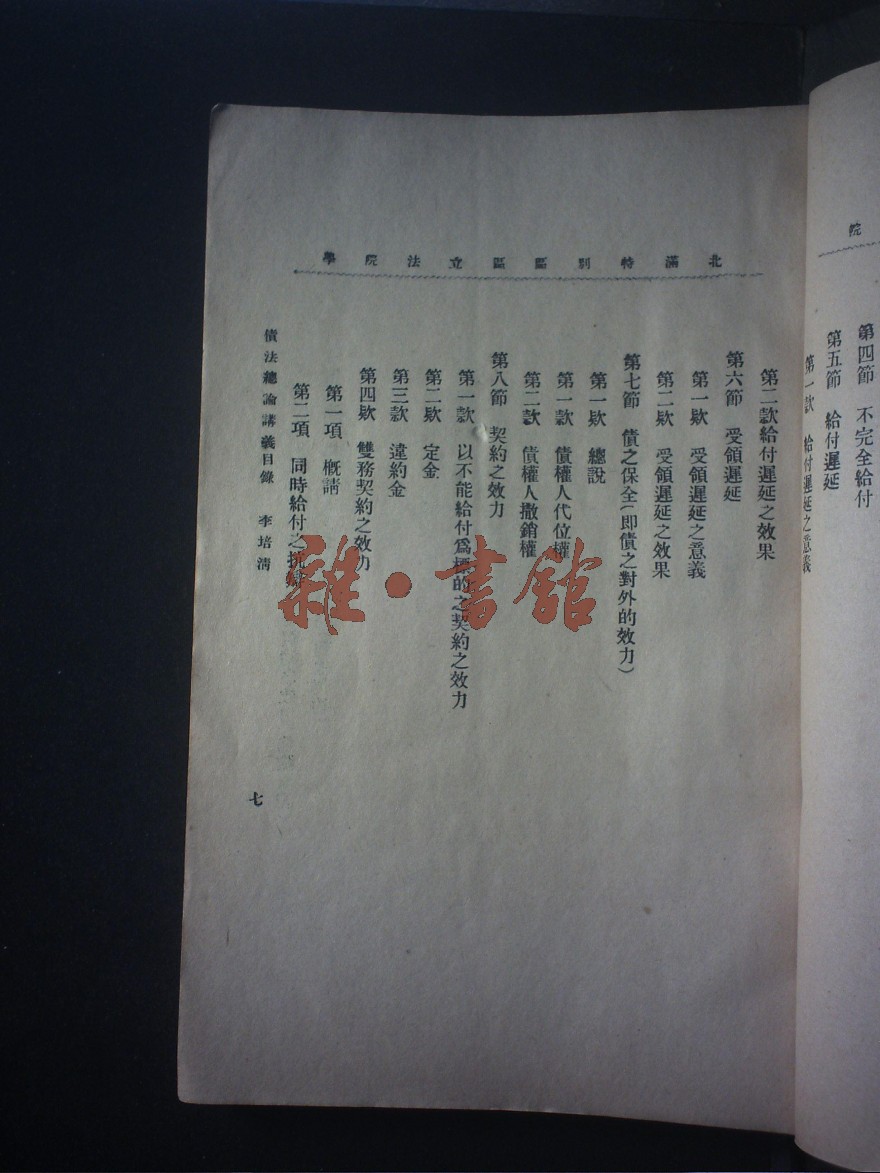 院
第四節　不完全給付
第五節　給付遲延
第一款　給付遲延之意義
北滿特別區區立法院學
第二款給付遲延之效果
第六節　受領遲延
第一欵　受領遲延之意義
第二欵　受領遲延之效果
第七節　債之保全(即債之對外的效力)
第一欵　總說
第一款　債權人代位權
第二款　債權人撒銷權
第八節　契約之效力
第一款　以不能給付爲標的之契約之效力
第二欵　定金
第三款　違約金
第四欵　雙務契約之效力
第一項　概講
第二項　同時給付之抗辯
債法總論講義目錄　李培清
七
雜·書館